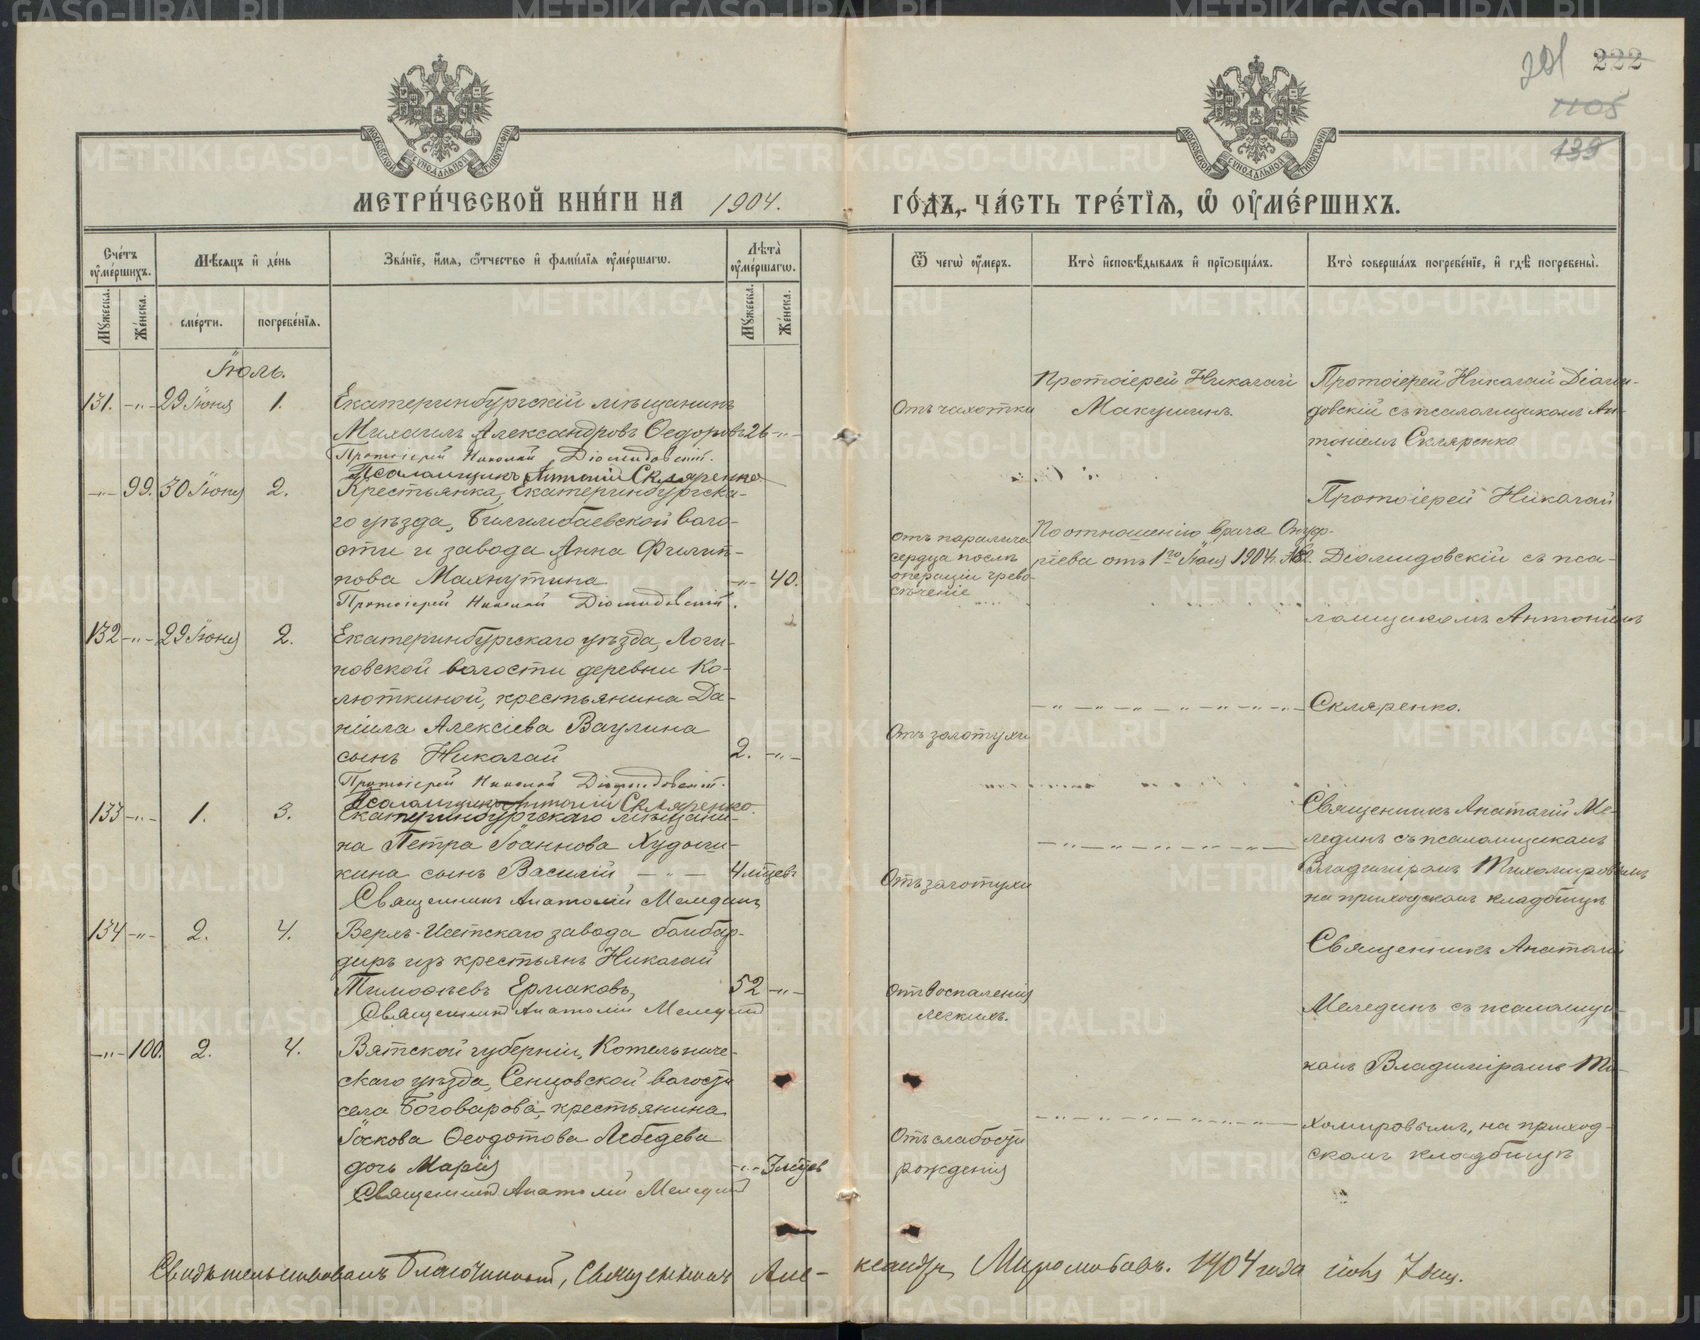 201 222
1105
139
МОСКОВСКОЙ СѴНОДАЛЬНОЙ ТИПОГРАФІИ
МОСКОВСКОЙ СѴНОДАЛЬНОЙ ТИПОГРАФІИ
МЕТРИ́ЧЕСКОЙ КНИ́ГИ НА 1904. ГО́ДЪ, ЧА́СТЬ ТРЕ́ТІѦ, Ѡ҆ ОУ҆МЕ́РШИХЪ.
Сче́тъ оу҆ме́ршихъ.
Мѣ́сѧцъ и҆ де́нь
Зва́нїе, и҆́мѧ, ѻ҆́тчество и҆ фами́лїѧ оу҆ме́ршагѡ.
Лѣта̀ оу҆ме́ршагѡ.
Ѿ чегѡ̀ оу҆́меръ.
Кто̀ и҆сповѣ́дывалъ и҆ прїѡбща́лъ.
Кто̀ соверша́лъ погребе́нїе, и҆ гдѣ̀ погребены̀.
Мꙋ́жеска.
Же́нска.
сме́рти.
погребе́нїѧ.
Мꙋ́жеска.
Же́нска.
Іюль.
131. -"- 29 Іюня 1.
Екатеринбургскій мѣщанинъ
Михаилъ Александровъ Ѳедоровъ 26 -"-
Протоіерей Николай Діомидовскій.
Псаломщикъ Антоній Скляренко
Отъ чахотки
Протоіерей Николай
Макушинъ
Протоіерей Николай Діоми-
довскій съ псаломщикомъ Ан-
тоніемъ Скляренко
-"- 99. 30 Іюня 2.
Крестьянка, Екатеринбургска-
го уѣзда, Билимбаевской воло-
сти и завода Анна Филип-
пова Махнутина -"- 40.
Протоіерей Николай Діомидовскій.
отъ паралича
сердца послѣ
операціи чрево-
сѣченіе
По отношенію врача Онуф-
ріева отъ 1го Іюля 1904 г.
Протоіерей Николай
Діомидовскій съ пса-
ломщикомъ Антоніемъ
Скляренко.
132 -"- 29 Іюня 2.
Екатеринбургскаго уѣзда, Логи-
новской волости деревни Ко-
люткиной, крестьянина Да-
ніила Алексіева Ваулина
сынъ Николай 2. -"-
Протоіерей Николай Діомидовскій.
Псаломщикъ Антоній Скляренко
Отъ золотухи
-"-"-"-"-"-
133 -"- 1. 3.
Екатеринбургскаго мѣщани-
на Петра Іоаннова Худоши-
кина сынъ Василій -"- 4 мѣсев.
Священникъ Анатолій Меледин
Отъ золотухи
-"-"-"-"-
Священникъ Анатолій Ме-
лединъ съ псаломщикомъ
Владиміромъ Тихомировымъ
на приходскомъ кладбищѣ
134 -"- 2. 4.
Верхъ-Исетскаго завода бомбар-
диръ изъ крестьянъ Николай
Тимоѳеевъ Ермаковъ, 52 -"-
Священникъ Анатолій Меледин
Отъ воспаленія
легкихъ.
Священникъ Анатолій
Мелединъ съ псаломщи-
комъ Владиміромъ Ти-
хомировымъ, на приход-
скомъ кладбищѣ
-"- 100. 2. 4.
Вятской губерніи, Котельниче-
скаго уѣзда, Сенцовской волости
села Боговарова, крестьянина
Іакова Ѳеодотова Лебедева
дочь Марія -"- 3 мѣсев
Священникъ Анатолій Меледин
Отъ слабости
рожденія
-"-"-"-"-
Свидѣтельствовалъ Благочинный, Священникъ Але-
ксандръ Миролюбовъ. 1904 года 7 дня.